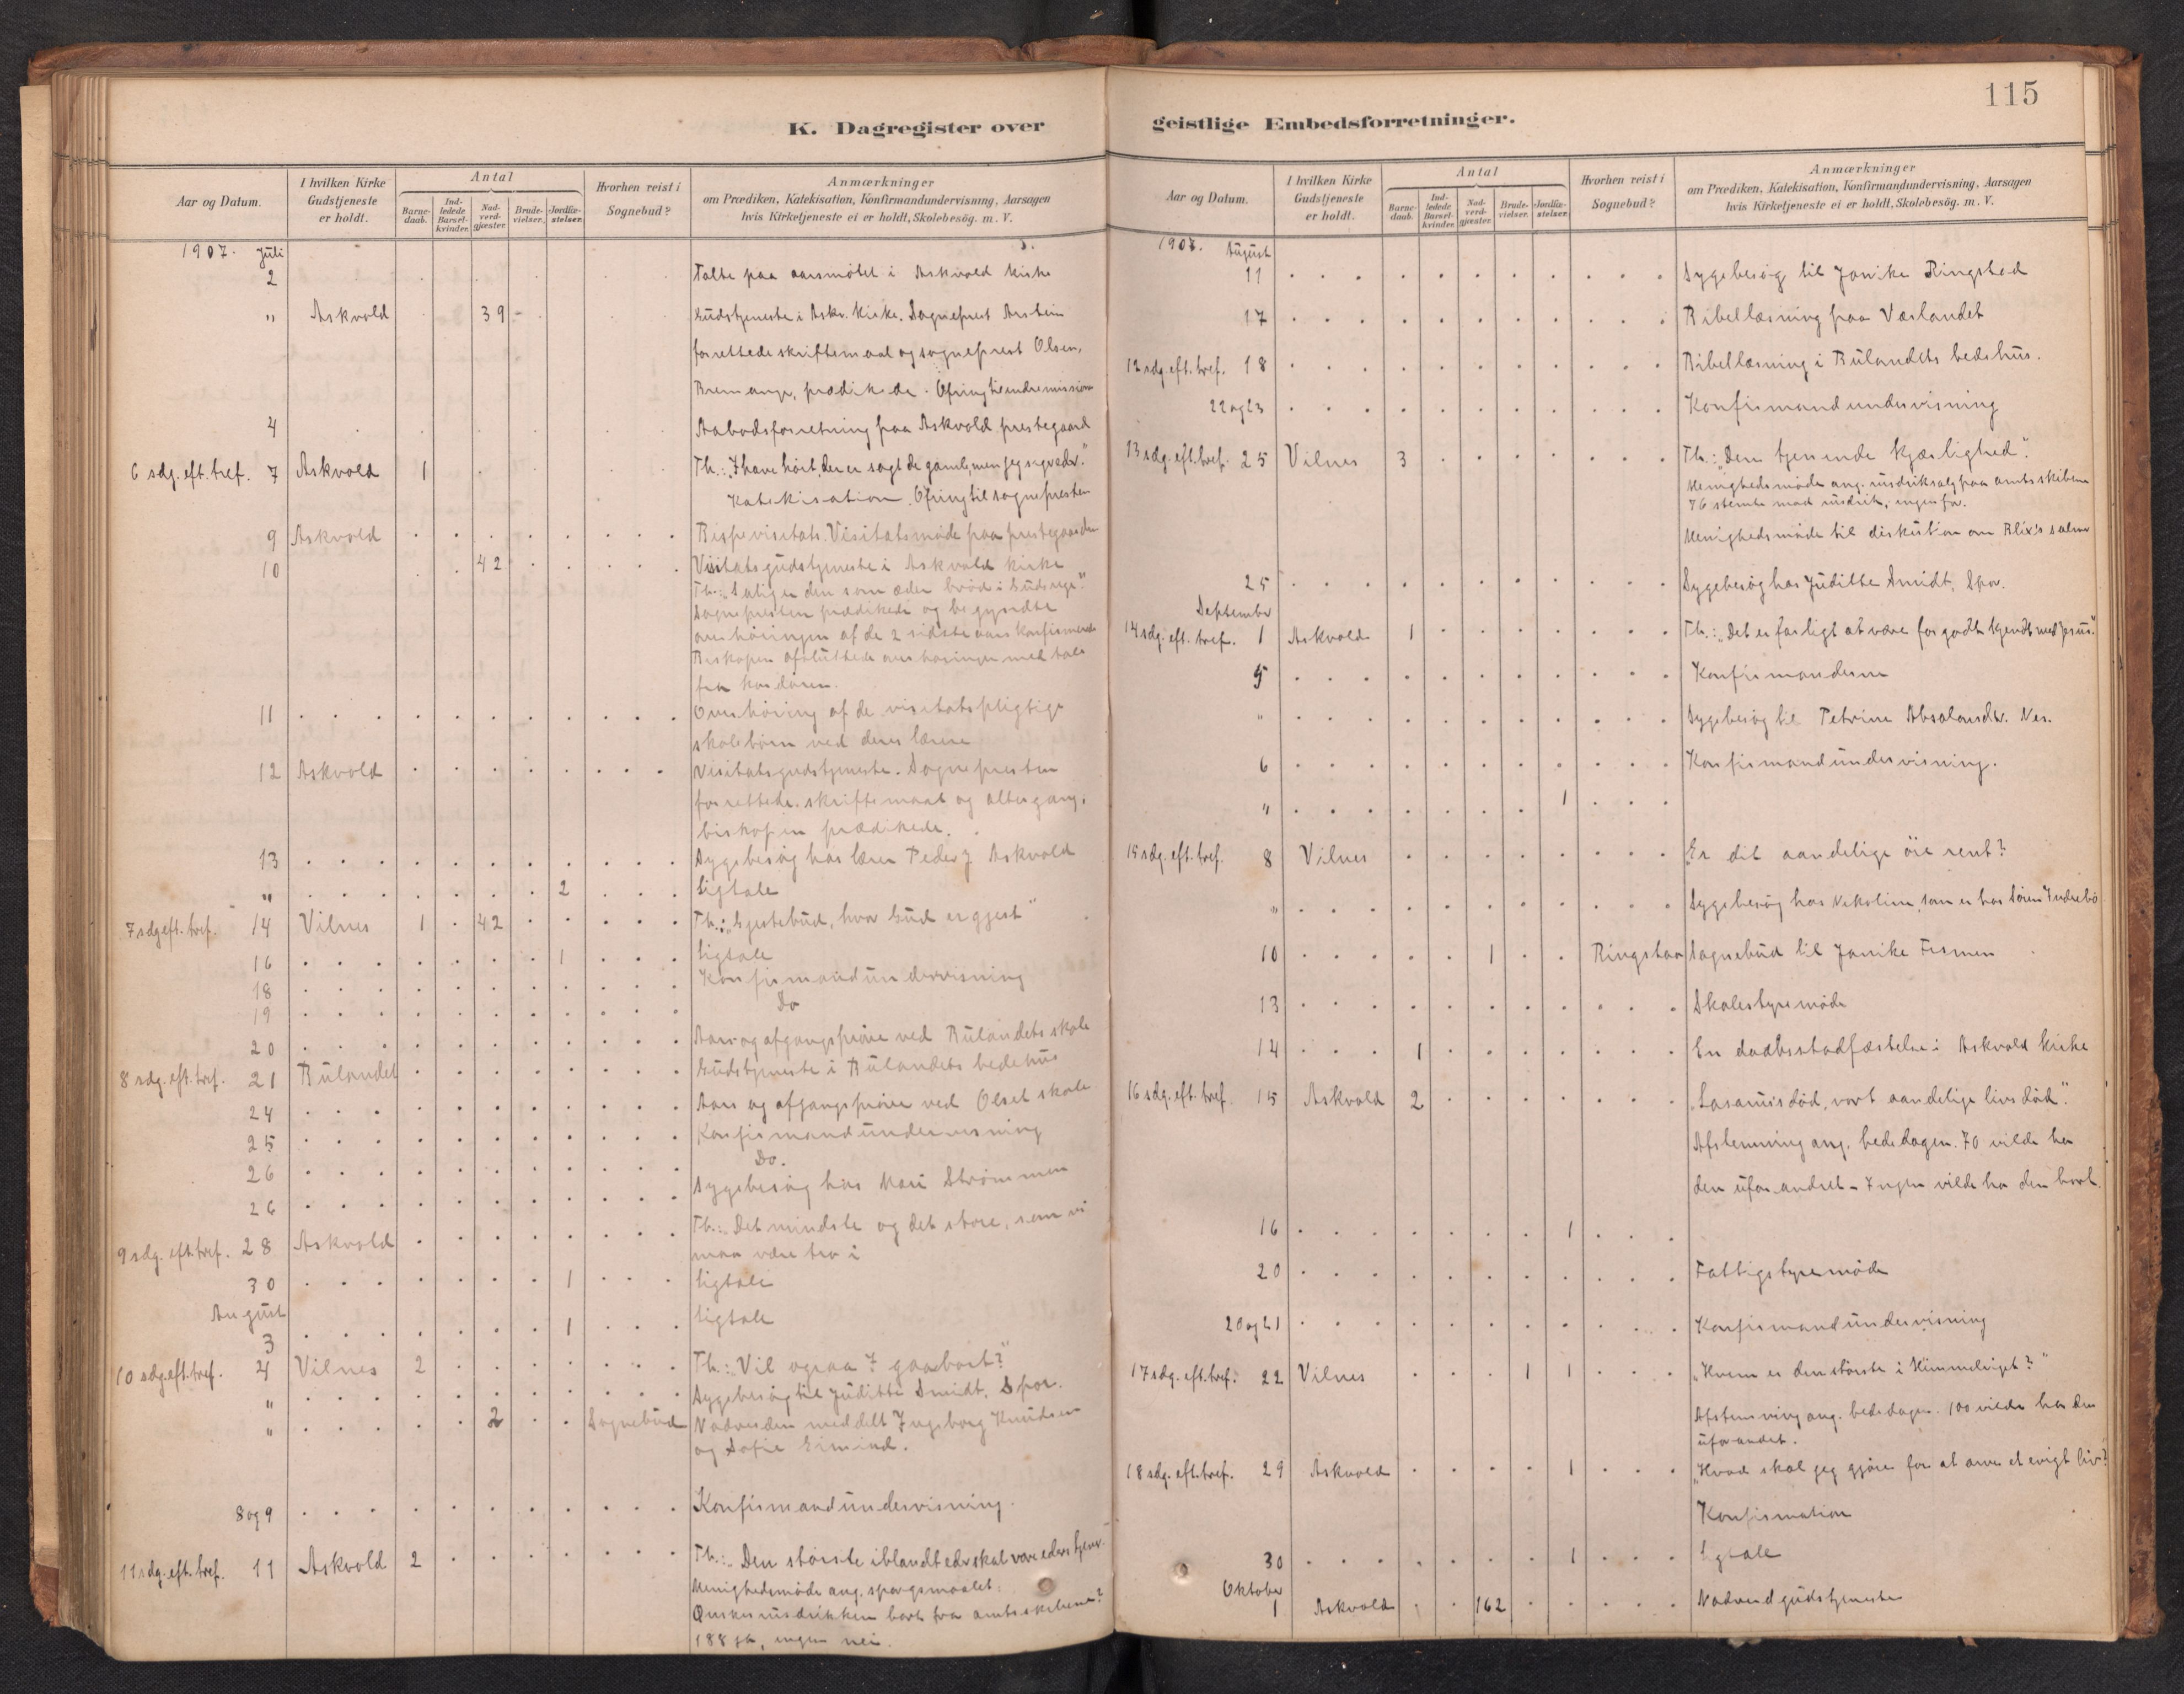 115
K. Dagregister over
geistlige Embedsforretninger.
Aar og Datum.
I hvilken Kirke Gudstjeneste er holdt.
Antal
Barne-daab.
Ind-ledede Barsel-kvinder.
Nad-verd-gjæster.
Brude-vielser.
Jordfæ-stelser.
Hvorhen reist i Sognebud?
Anmærkninger
om Prædiken, Katekisation, Konfirmandundervisning, Aarsagen
hvis Kirketjeneste ei er holdt, Skolebesög. m. V.
1907. Juli
2 Talte paa aarsmötet i Askvold kirke
" Askvold 39 Gudstjeneste i Askv. kirke. Sogneprest Arstein
forrettede skriftemaal og sogneprest Olsen,
Bremanger, prædikede. Ofring til indremission
4 Aabodsforretning paa Askvold prestegaard
6 sdg. eft. tref. 7 Askvold 1 Th.: "I have hört, der er sagt de gamle, men jeg siger eder."
Katekisation. Ofring til sognepresten
9 Askvold Bispevisitats. Visitatsmöde paa prestegaarden
10 42 Visitatsgudstjeneste i Askvold kirke
Th.: "Salig er den som æder bröd i Guds rige."
Sognepresten prædikede og begyndte
overhöringen af de 2 sidste aars konfirmerede
Biskopen afsluttede overhöringen med tale
fra kordören.
11 Overhöring af de visitatspligtige
skolebörn ved deres lærere
12 Askvold Visitatsgudstjeneste. Sognepresten
forrettede skriftemaal og altergang,
biskopen prædikede.
13 Sygebesög hos lærer Peder J Askvold
" 2 Ligtale
7 sdg eft. tref. 14 Vilnes 1 42 Th.: "Gjestebud, hvor Gud er gjest"
16 1 Ligtale
18 Konfirmandundervisning
19 Do
20 Aars og afgangspröve ved Bulandets skole
8 sdg. eft. tref. 21 Bulandet Gudstjeneste i Bulandets bedehus
24 Aars og afgangspröve ved Olset skole
25 Konfirmandundervisning
26 Do.
26 Sygebesög hos Mari Strömmen
9 sdg. eft. tref. 28 Askvold Th.: Det mindste og det store, som vi
maa være tro i
30 1 Ligtale
August
3 1 Ligtale
10 sdg. eft. tref. 4 Vilnes 2 Th.: "Vil ogsaa I gaa bort?"
" Sygebesög til Juditte Smidt, Spor.
" 2 Sognebud Nadverden meddelt Ingeborg Knudsen
og Sofie
8 og 9 Konfirmandundervisning.
11 sdg. eft. tref. 11 Askvold 2 Th.: "Den störste iblandt eder skal være eders tjener."
Menighedsmöde ang. spörgsmaalet:
Önskes rusdrikken bort fra amtsskibene?
188 ja, ingen nei.
Aar og Datum.
I hvilken Kirke Gudstjeneste er holdt.
Antal
Barne-daab.
Ind-ledede Barsel-kvinder.
Nad-verd-gjæster.
Brude-vielser.
Jordfæ-stelser.
Hvorhen reist i Sognebud?
Anmærkninger
om Prædiken, Katekisation, Konfirmandundervisning, Aarsagen
hvis Kirketjeneste ei er holdt, Skolebesög. m. V.
1907. August
11 Sygebesög til Janike Ringstad
17 Bibellæsning paa Værlandet
12 sdg. eft. tref. 18 Bibellæsning i Bulandets bedehus.
22 og 23 Konfirmandundervisning
13 sdg. eft. tref. 25 Vilnes 3 Th.: "Den tjenende kjærlighed".
Menighedsmöde ang. rusdriksalg paa amtsskibene
76 stemte mod rusdrik, ingen for.
Menighedsmöde til diskution om Blix's salmer
25 Sygebesög hos Juditte Smidt, Spor.
September
14 sdg. eft. tref. 1 Askvold 1 Th.: "Det er farligt at være for godt kjendt med Jesus."
5 Konfirmanderne
" Sygebesög til Petrine Absalonsdtr. Nes.
6 Konfirmandundervisning.
" 1
15 sdg. eft. tref. 8 Vilnes "Er dit aandelige öie rent?
" Sygebesög hos Nikoline, som er hos Sören Indrebö
10 1 Ringstad Sognebud til Janike
13 Skolestyremöde
14 1 En daabsstadfæstelse i Askvold kirke
16 sdg. eft. tref. 15 Askvold 2 "Lasarus's död, vort aandelige livs död".
Afstemning ang. bededagen. 70 vilde ha
den uforandret – Ingen vilde ha den bort.
16 1
20 Fattigstyremöde
20 og 21 Konfirmandundervisning
17 sdg. eft. tref. 22 Vilnes 1 1 "Hvem er den störste i Himmeriget?"
Afstemning ang. bededagen. 100 vilde ha den
uforandret.
18 sdg. eft. tref. 29 Askvold 1 "Hvad skal jeg gjöre for at arve et evigt liv?"
Konfirmation
30 1 Ligtale
Oktober
1 Askvold 162 Nadverdgudstjeneste